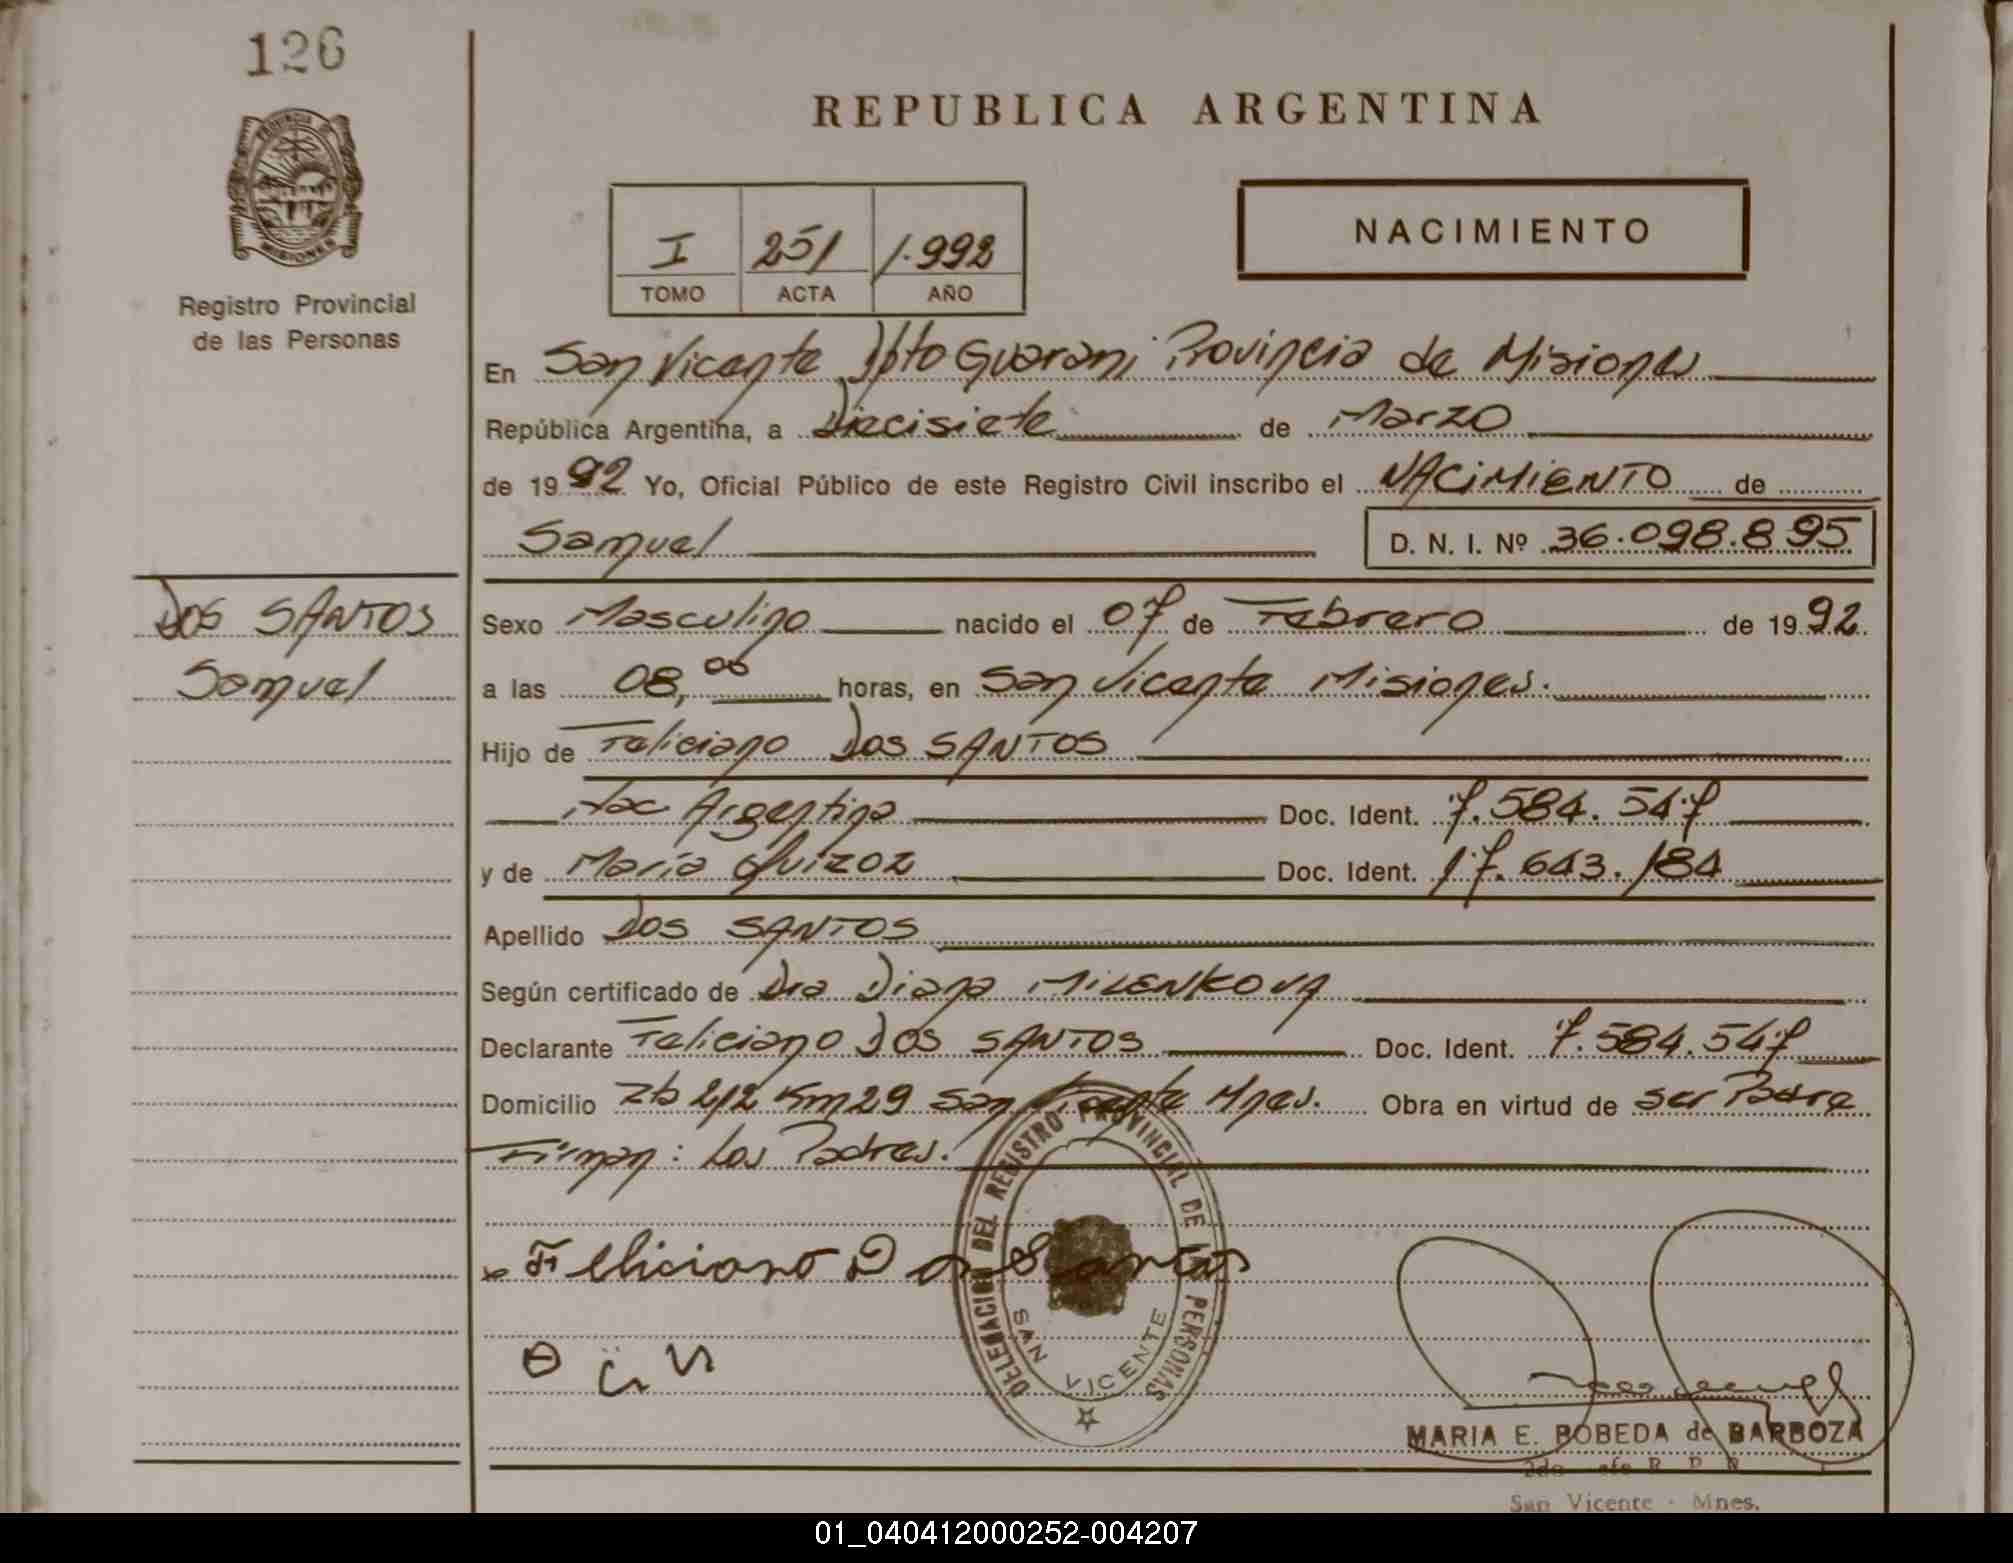 126
PROVINCIA DE
MISIONES
Registro Provincial
de las Personas
DOS SANTOS
Samuel
REPUBLICA ARGENTINA
I 251 1.992
TOMO ACTA AÑO
NACIMIENTO
En San Vicente Dpto Guarani Provincia de Misiones
República Argentina, a Diecisiete de Marzo
de 1992 Yo, Oficial Público de este Registro Civil inscribo el NACIMIENTO de
Samuel D. N. I. Nº 36.098.895
Sexo Masculino nacido el 07 de Febrero de 1992
a las 08,00 horas, en San Vicente Misiones.
Hijo de Feliciano DOS SANTOS
Nac Argentina Doc. Ident. 7.584.547
y de María Quiroz Doc. Ident. 17.643.184
Apellido DOS SANTOS
Según certificado de Dra Diana MILENKOVA
Declarante Feliciano DOS SANTOS Doc. Ident. 7.584.547
Domicilio Lb 212 Km 29 San Vicente Mnes. Obra en virtud de ser Padre
Firman: Los Padres.
DELEGACION DEL REGISTRO PROVINCIAL DE LAS PERSONAS
SAN VICENTE
MARIA E. BOBEDA de BARBOZA
San Vicente - Mnes.
01_040412000252-004207